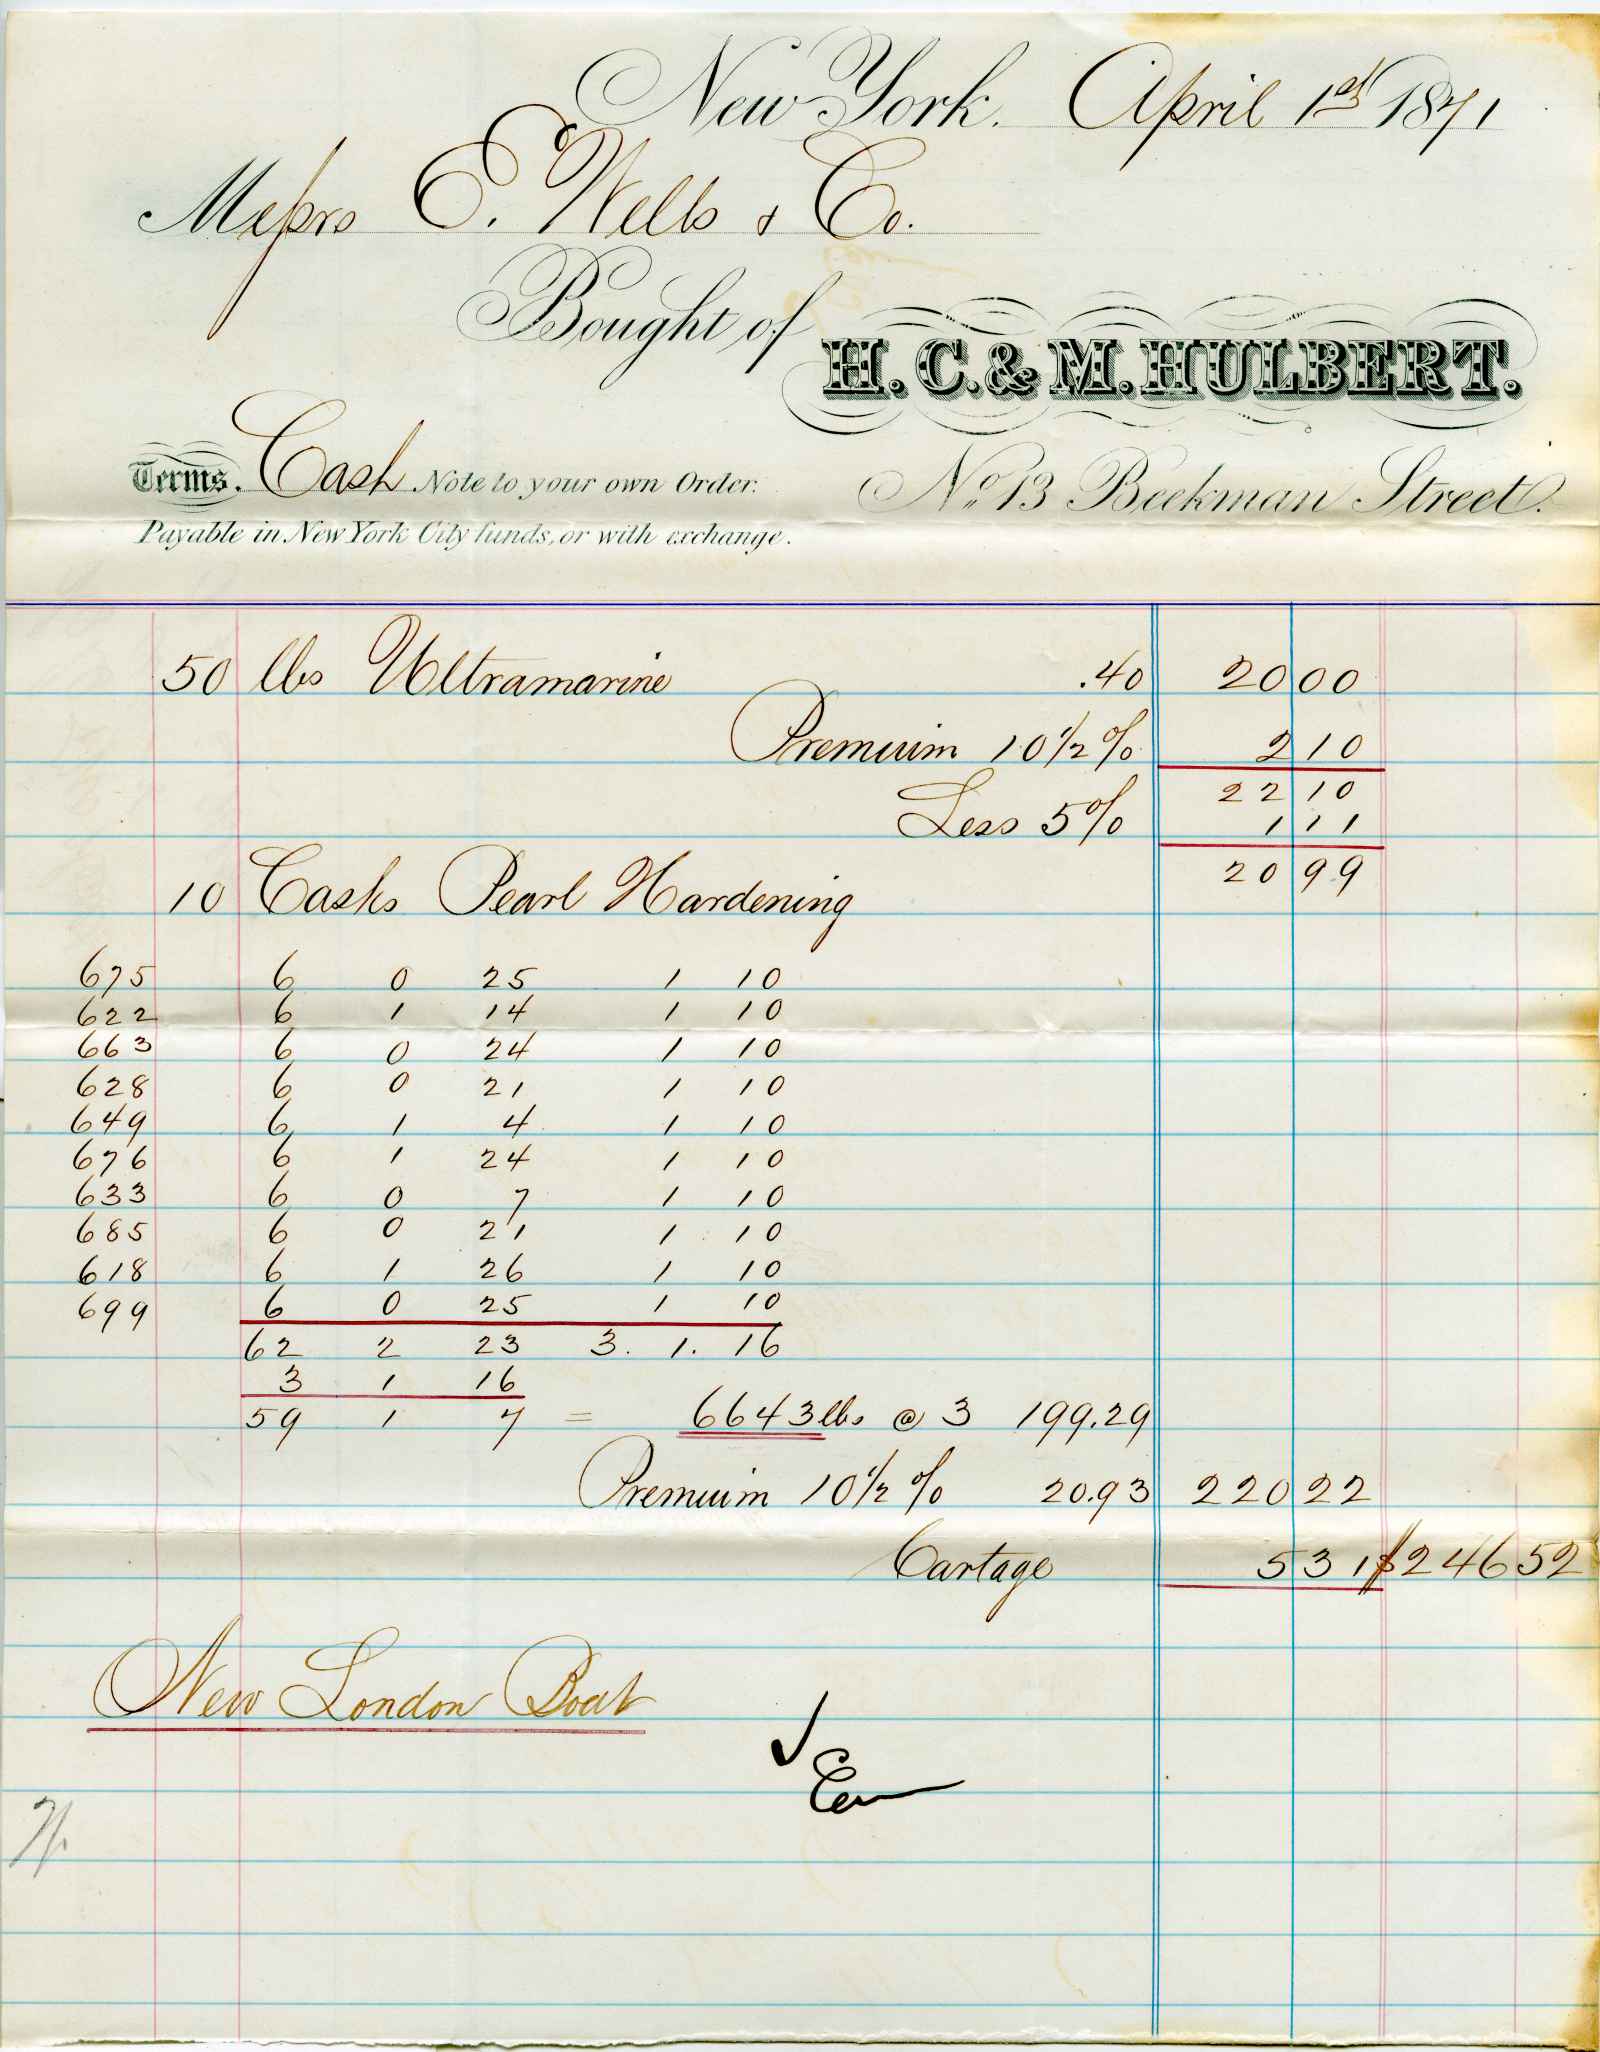 New York. April 1st 1871
Messrs E. Wells & Co.
Bought of H. C. & M. HULBERT.
Terms. Cash Note to your own Order.
No. 13 Beekman Street.
Payable in New York City funds, or with exchange.
50 lbs Ultramarine .40 20 00
Premium 10 1/2 % 2 10
22 10
Less 5 % 1 11
20 99
10 Casks Pearl Hardening
675 6 0 25 1 10
622 6 1 14 1 10
663 6 0 24 1 10
628 6 0 21 1 10
649 6 1 4 1 10
676 6 1 24 1 10
633 6 0 7 1 10
685 6 0 21 1 10
618 6 1 26 1 10
699 6 0 25 1 10
62 2 23 3. 1. 16
3 1 16
59 1 7 = 6643 lbs @ 3 199.29
Premium 10 1/2 % 20.93 220 22
Cartage 5 31 $246 52
New London Boat